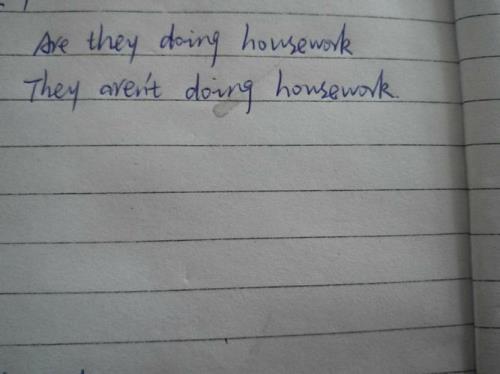 Are they doing housework
They aren't doing housework.